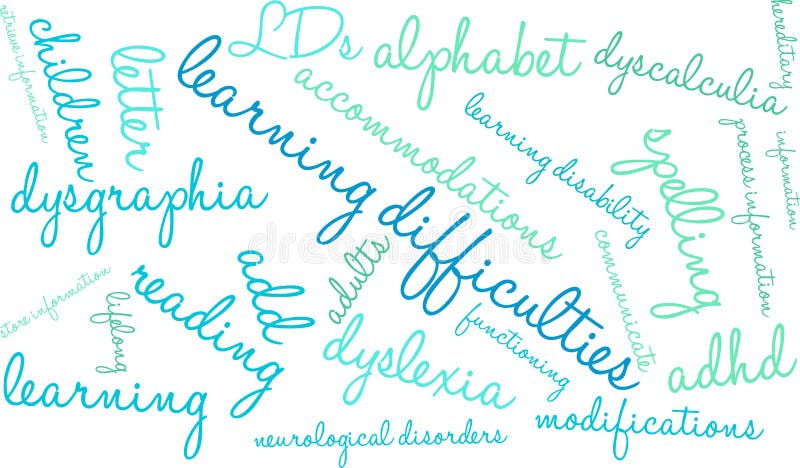 retrieve information
children
letter
LDs
alphabet
dyscalculia
hereditary
learning difficulties
accommodations
learning disability
spelling
process information
information
dysgraphia
communicate
adults
add
reading
store information
lifelong
learning
dyslexia
functioning
adhd
modifications
neurological disorders
dreamstime